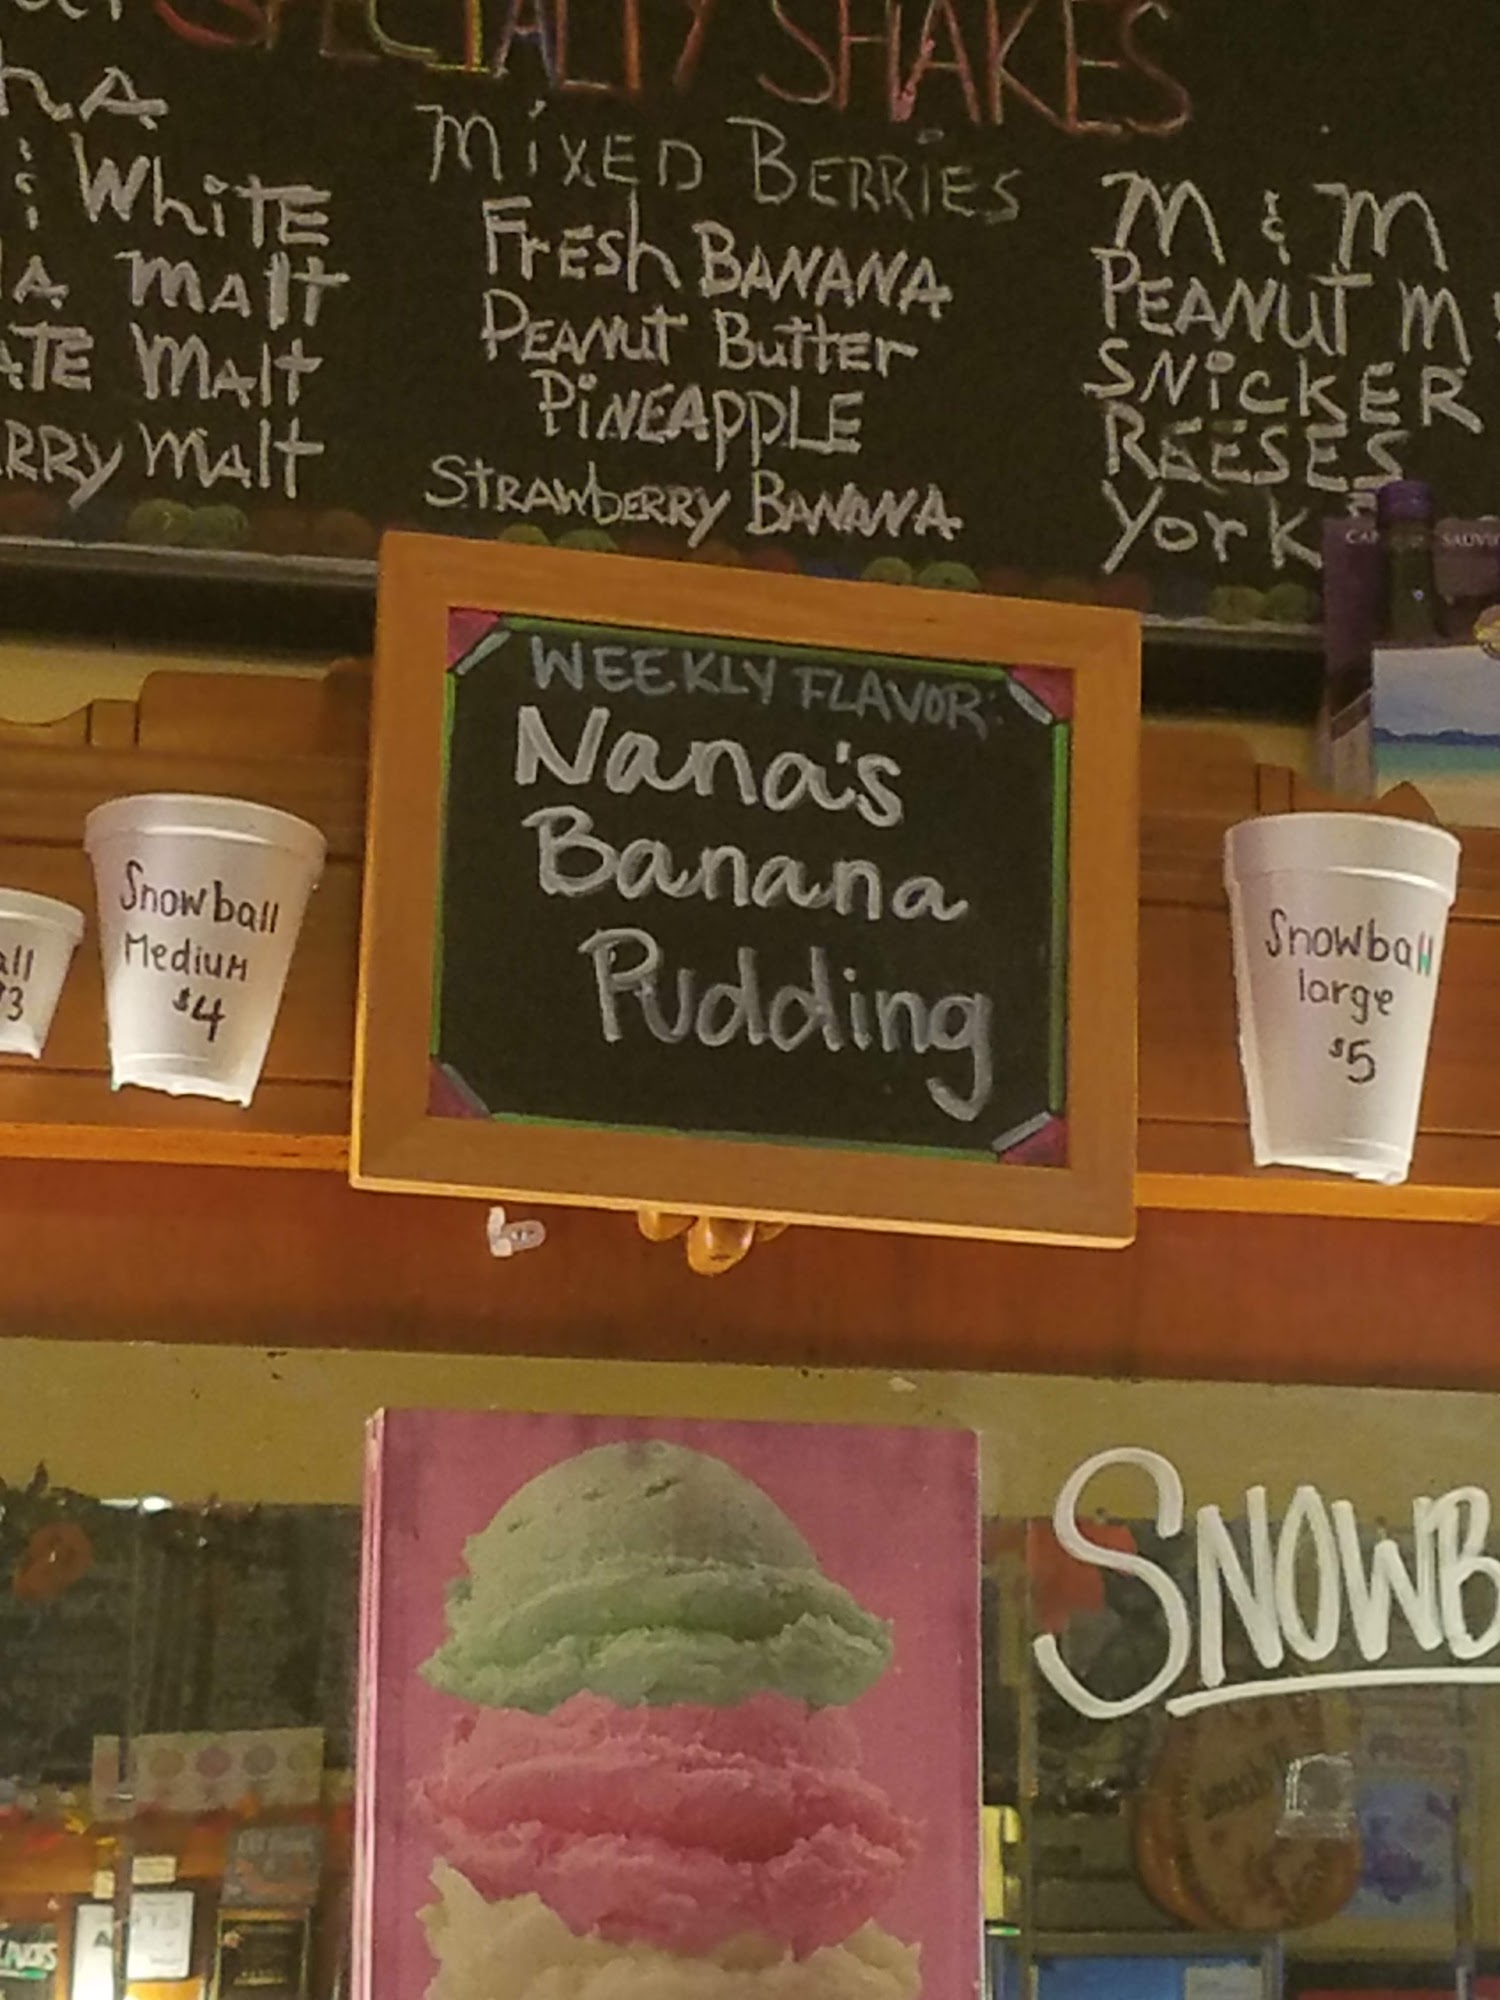 SPECIALTY SHAKES
& WHITE
MALT
MALT
MALT
MIXED BERRIES
FRESH BANANA
PEANUT BUTTER
PINEAPPLE
STRAWBERRY BANANA
M & M
PEANUT M
SNICKER
REESES
YORK
WEEKLY FLAVOR:
Nana's
Banana
Pudding
Snowball
Medium
$4
Snowball
large
$5
SNOWB